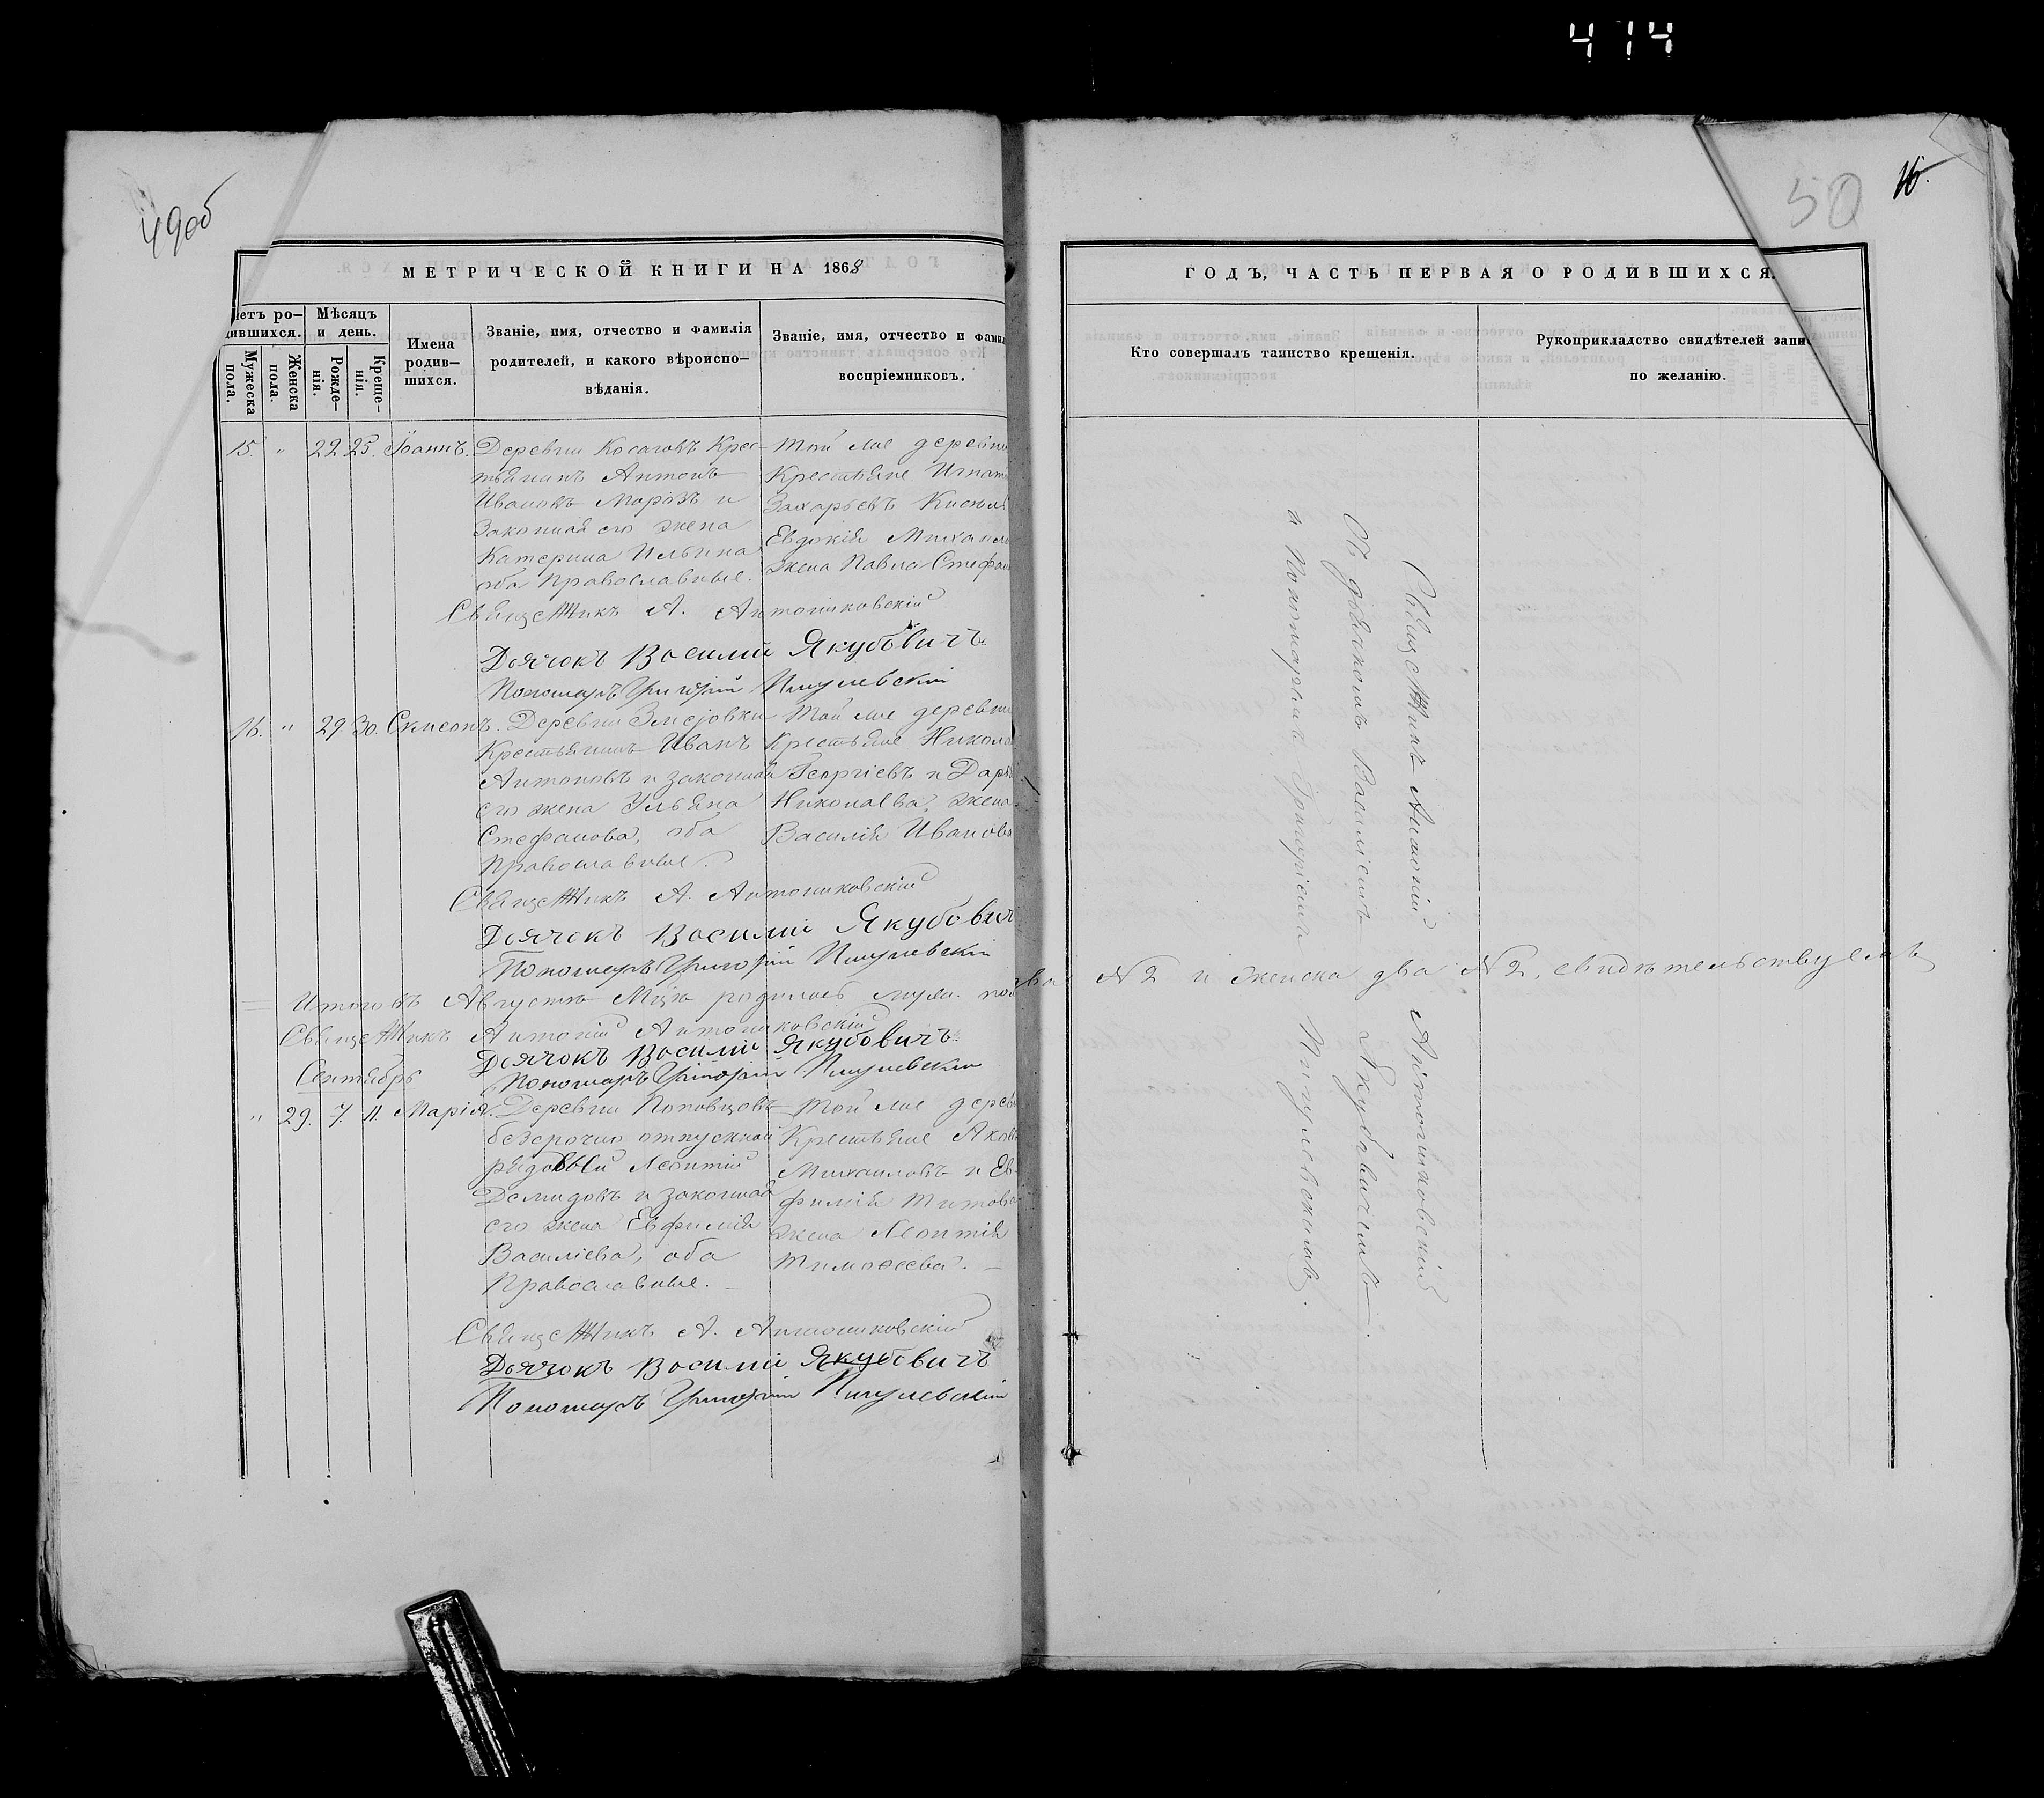 414
49об
50
16.
МЕТРИЧЕСКОЙ КНИГИ НА 1868
ГОДЪ, ЧАСТЬ ПЕРВАЯ О РОДИВШИХСЯ.
етъ ро-
дившихся.
Мужеска пола.
Женска пола.
Мѣсяцъ
и день.
Рожде-
нія.
Креще-
нія.
Имена
родив-
шихся.
Званіе, имя, отчество и фамилія
родителей, и какого вѣроиспо-
вѣданія.
Званіе, имя, отчество и фами
воспріемниковъ.
Кто совершалъ таинство крещенія.
Рукоприкладство свидѣтелей запи
по желанію.
15. " 22. 25. Іоаннъ.
Деревни Косаговъ Крес-
тьянинъ Антонъ
Ивановъ Морозъ и
Законная его жена
Катерина Ильина
оба Православные.
Той же деревни
Крестьяне Игнат
Захарьевъ
Евдокія Михаил
жена Павла Стефан
Священникъ А. Антониковскій
Дьячокъ Василій Якубовичъ
Пономарь Григорій Пигулевскій
16. " 29. 30. Симеонъ.
Деревни Змеіовки
Крестьянинъ Иванъ
Антоновъ и законная
его жена Ульяна
Стефанова, оба
Православные.
Той же деревни
Крестьяне Никола
Георгіевъ и Дарья
Николаева, жена
Василія Иванова
Священникъ А. Антониковскій
Дьячокъ Василій Якубович
Пономарь Григорій Пигулевскій
Итого въ Августѣ М-цѣ родилось муж. пол два № 2 и женска два № 2, свидѣтельствуемъ
Священникъ Антоній Антониковскій
Дьячокъ Василій Якубовичъ
Пономарь Григорій Пигулевскій
Сентябрь
" 29. 7. 11. Марія.
Деревни Поповцевъ
безсрочно отпускной
рядовый Леонтій
Демидовъ и законная
его жена Евфимія
Василіева, оба
Православные.
Той же дерев
Крестьяне Яков
Михаиловъ и Ев-
фимія Титова
жена Леонтія
Тимофеева.
Священникъ А. Антониковскій
Дьячокъ Василій Якубовичъ
Пономарь Григорій Пигулевскій
Священникъ Антоній Антониковскій
Съ дьячкомъ Василіемъ Якубовичемъ
и Пономаремъ Григоріемъ Пигулевскимъ.